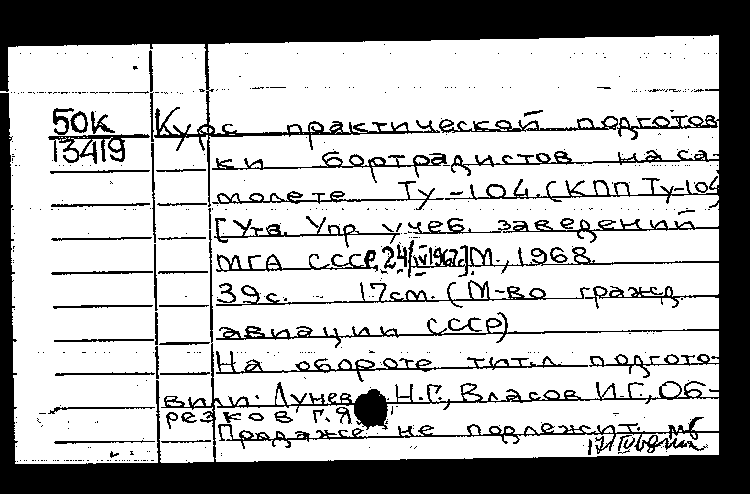 50к Курс практической подготов
13419 ки бортрадистов на са-
молете Ту-104. (КПП Ту-104)
[Утв. Упр учеб. заведений
МГА СССР, 24/IV1967г.] М., 1968.
39с. 17см. (М-во гражд
авиации СССР)
На обороте тит.л. подгото-
вили: Лунев Н.Г., Власов И.Г., Об-
резков Г.Я
Продаже не подлежит.